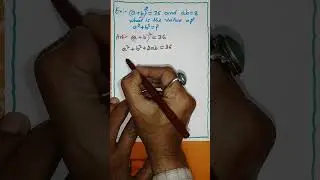 Ex:- (a+b)²=36 and ab=8
what is the value of
a²+b²=?
Ans:- (a+b)²=36
a²+b²+2ab=36